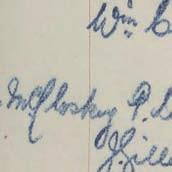 Wm C
McCloskey P. L
J. Gille